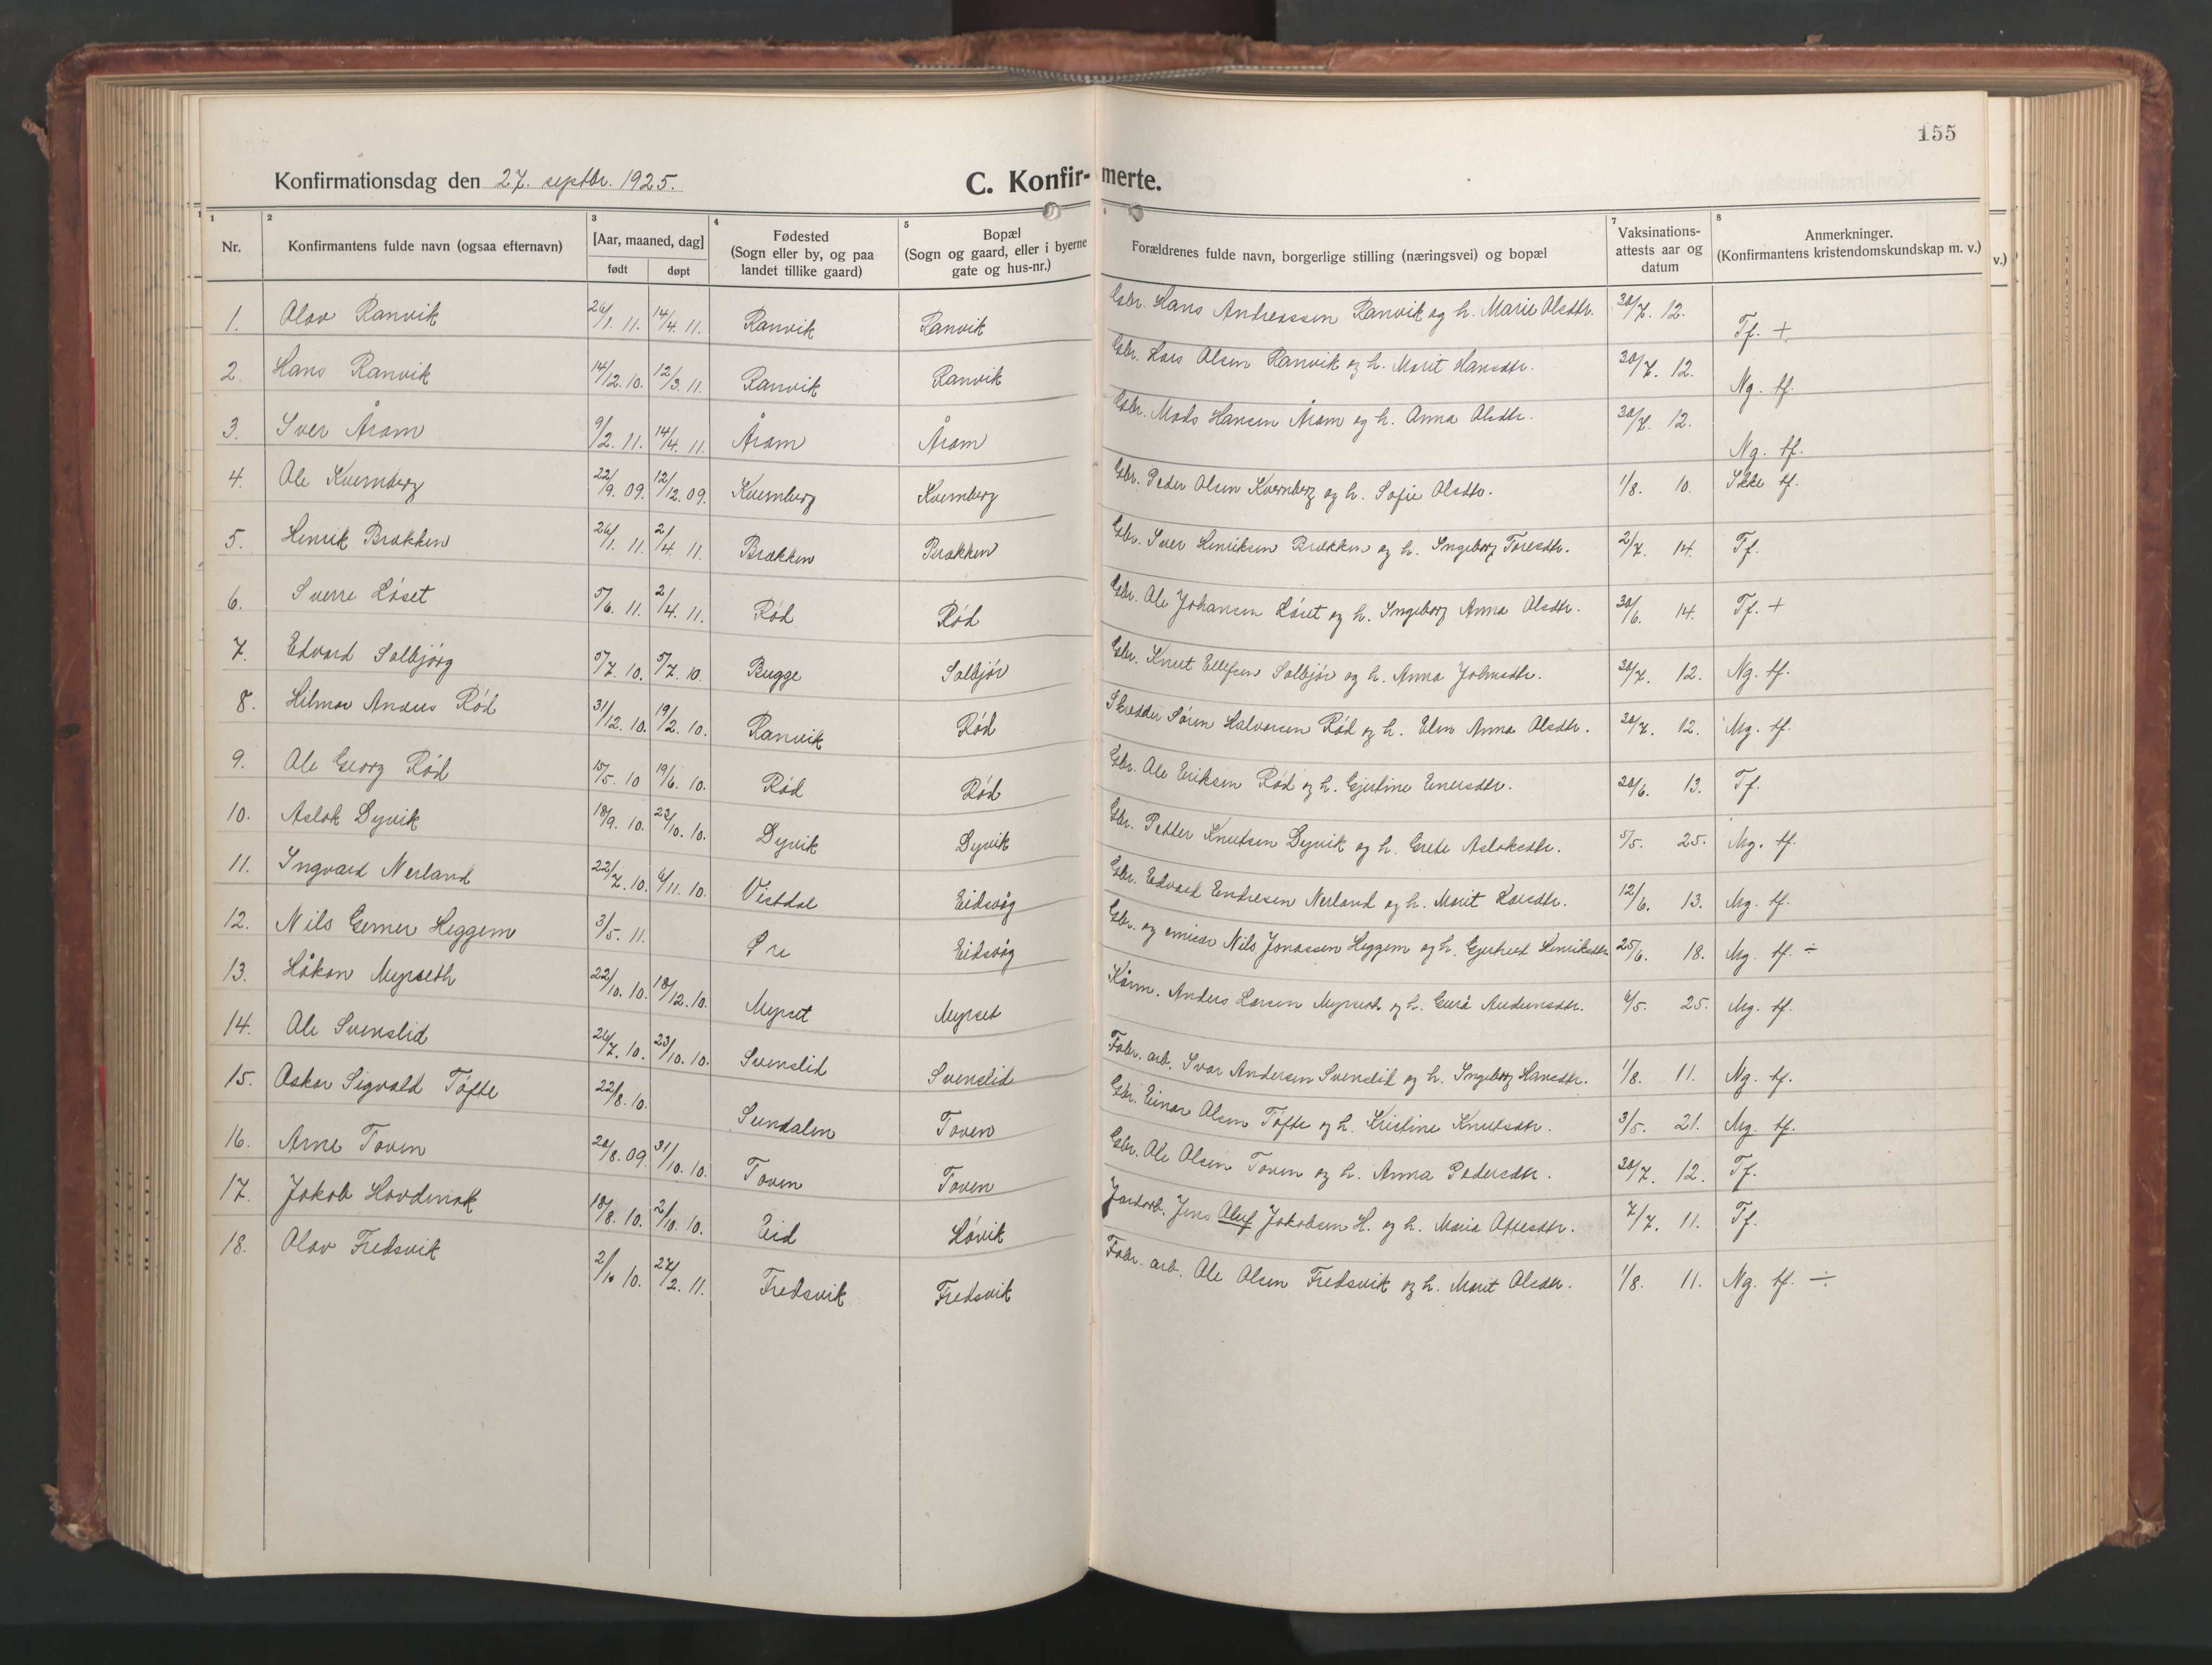 155
Konfirmationsdag den 27. septbr. 1925.
C. Konfir- merte.
1 2 3 4 5 6 7 8
Nr. | Konfirmantens fulde navn (ogsaa efternavn) | [Aar, maaned, dag] født | døpt | Fødested (Sogn eller by, og paa landet tillike gaard) | Bopæl (Sogn og gaard, eller i byerne gate og hus-nr.) | Forældrenes fulde navn, borgerlige stilling (næringsvei) og bopæl | Vaksinations-attests aar og datum | Anmerkninger. (Konfirmantens kristendomskundskap m. v.) v.)
1. Olav Ranvik 26/1. 11. 14/4. 11. Ranvik Ranvik Gbr. Hans Andreassen Ranvik og h. Marie Olsdtr. 30/7. 12. Tf. +
2. Hans Ranvik 14/12. 10. 12/3. 11. Ranvik Ranvik Gbr. Lars Olsen Ranvik og h. Marit Hansdtr. 30/7. 12. Ng. tf.
3. Iver Åram 9/2. 11. 14/4. 11. Åram Åram Gbr. Mads Hansen Åram og h. Anna Olsdtr. 30/7. 12. Ng. tf.
4. Ole Kvernberg 22/9. 09. 12/12. 09. Kvernberg Kvernberg Gbr. Peder Olsen Kvernberg og h. Sofie Olsdtr. 1/8. 10. Ikke tf.
5. Henrik Brakken 26/1. 11. 2/4. 11. Brakken Brakken Gbr. Iver Henriksen Brakken og h. Ingeborg Toresdtr. 2/7. 14. Tf.
6. Sverre Löset 5/6. 11. 2/4. 11. Röd Röd Gbr. Ole Johansen Löset og h. Ingeborg Anna Olsdtr. 30/6. 14. Tf. +
7. Edvard Solbjörg 5/7. 10. 5/7. 10. Bugge Solbjör Gbr. Knut Ellefsen Solbjör og h. Anna Johnsdtr. 30/7. 12. Ng. tf.
8. Hilmar Andreas Röd 31/12. 10. 19/2. 10. Ranvik Röd Skredder Sören Halvorsen Röd og h. Elen Anna Olsdtr. 30/7. 12. Mg. tf.
9. Ole Georg Röd 15/5. 10 19/6. 10. Röd Röd Gbr. Ole Eriksen Röd og h. Gjertine Einersdtr. 20/6. 13. Tf.
10. Aslak Dyvik 18/9. 10. 23/10. 10. Dyvik Dyvik Gbr. Petter Knutsen Dyvik og h. Grete Aslaksdtr. 5/5. 25. Mg. tf.
11. Ingvard Nerland 22/7. 10. 6/11. 10. Vistdal Eidsvåg Gbr. Edvard Endresen Nerland og h. Marit Larsdtr. 12/6. 13. Mg. tf.
12. Nils Gerner Heggem 3/5. 11. Øre Eidsvåg Gbr. og emisær Nils Jonassen Heggem og h. Gjertrud Henriksdtr. 25/6. 18. Mg. tf. ÷
13. Håkon Myrseth 22/10. 10. 18/12. 10. Myrset Myrset Kårm. Anders Larsen Myrseth og h. Gurå Audunsdtr. 6/5. 25. Mg. tf.
14. Ole Svenslid 26/7. 10. 23/10. 10. Svenslid Svenslid Fabr. arb. Ivar Andersen Svenslid og h. Ingeborg Hansdtr. 1/8. 11. Ng. tf.
15. Oskar Sigvald Töfte 22/8. 10. Sundalen Toven Gbr. Einar Olsen Töfte og h. Kristine Knutsdtr. 3/5. 21. Mg. tf.
16. Arne Toven 20/8. 09. 31/10. 10. Toven Toven Gbr. Ole Olsen Toven og h. Anna Pedersdtr. 30/7. 12. Tf.
17. Jakob Hovdenak 18/8. 10. 2/10. 10. Eid Hövik Jordarb. Jens Oluf Jakobsen H. og h. Maria Ottesdtr. 7/7. 11. Tf.
18. Olav Fredsvik 2/10 10. 27/2. 11. Fredsvik Fredsvik Fabr. arb. Ole Olsen Fredsvik og h. Marit Olsdtr. 1/8. 11. Ng. tf. ÷